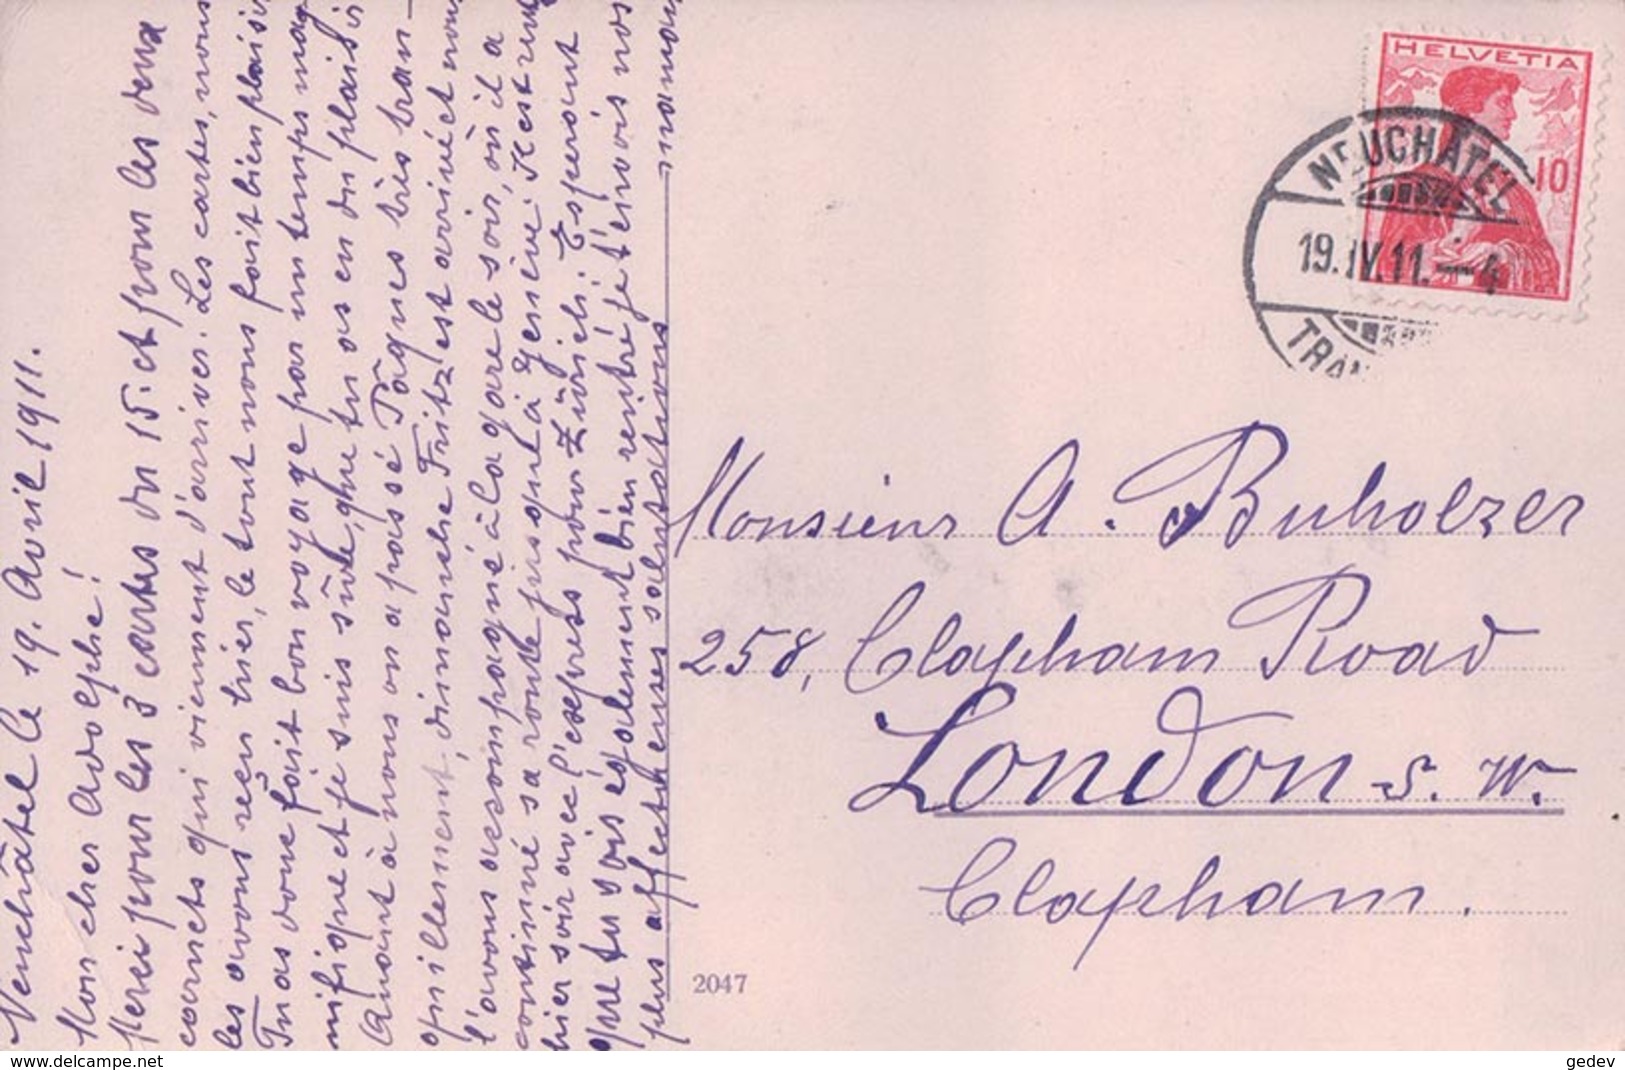 Neuchâtel le 19. Avril 1911.
Mon cher Adolphe!
Merci pour les 3 cartes du 15. et pour les deux
carnets qui viennent d'arriver. Les cartes, nous
les avons reçu hier, le tout nous fait bien plaisir,
Tu as donc fait bon voyage par un temps mag-
nifique et je suis sûre, que tu as eu du plaisir
Quant à nous on a passé Pâques très tran-
quillement, dimanche Fritz est arrivé et nous
l'avons accompagné à la gare le soir, où il a
continué sa route jusqu'à Genève. Il est rentré
hier soir avec l'express pour Zürich. Esperant
que tu sois également bien rentré je t'envois nos
plus affectueuses salutations
maman
HELVETIA
10
NEUCHÂTEL
19.IV.11.-4
TRAN
Monsieur A. Buholzer
258, Clapham Road
London S. W.
Clapham.
2047
www.delcampe.net
gedev